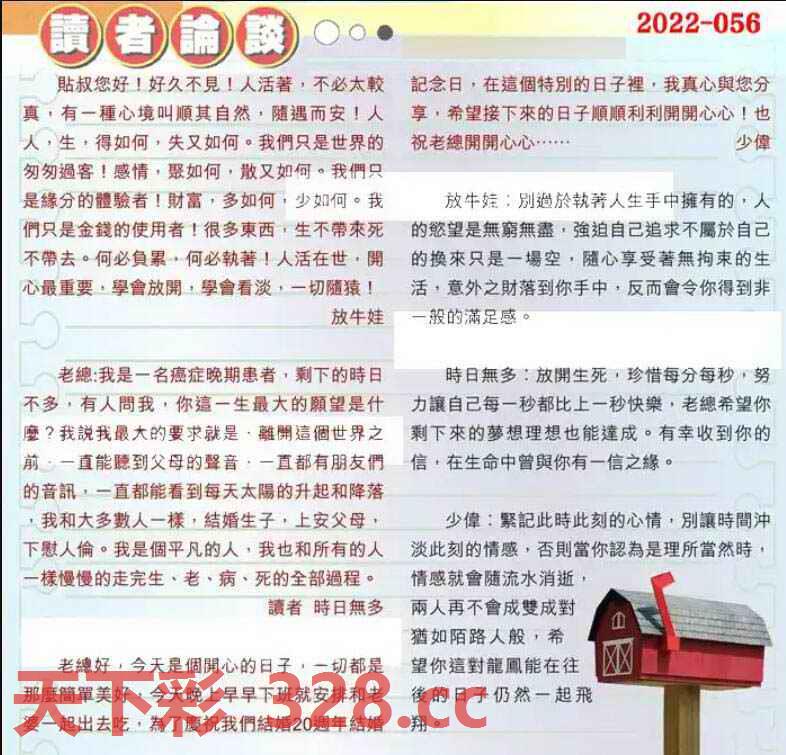 讀者論談
2022-056
貼叔您好！好久不見！人活著，不必太較
真，有一種心境叫順其自然，隨遇而安！人
人，生，得如何，失又如何。我們只是世界的
匆匆過客！感情，聚如何，散又如何。我們只
是緣分的體驗者！財富，多如何，少如何。我
們只是金錢的使用者！很多東西，生不帶來死
不帶去。何必負累，何必執著！人活在世，開
心最重要，學會放開，學會看淡，一切隨猿！
放牛娃
老總:我是一名癌症晚期患者，剩下的時日
不多，有人問我，你這一生最大的願望是什
麼？我説我最大的要求就是，離開這個世界之
前，一直能聽到父母的聲音，一直都有朋友們
的音訊，一直都能看到每天太陽的升起和降落
，我和大多數人一樣，結婚生子，上安父母，
下慰人倫。我是個平凡的人，我也和所有的人
一樣慢慢的走完生、老、病、死的全部過程。
讀者 時日無多
老總好，今天是個開心的日子，一切都是
那麼簡單美好，今天晚上早早下班就安排和老
婆一起出去吃，為了慶祝我們結婚20週年結婚
記念日，在這個特別的日子裡，我真心與您分
享，希望接下來的日子順順利利開開心心！也
祝老總開開心心⋯⋯ 少偉
放牛娃：別過於執著人生手中擁有的，人
的慾望是無窮無盡，強迫自己追求不屬於自己
的換來只是一場空，隨心享受著無拘束的生
活，意外之財落到你手中，反而會令你得到非
一般的滿足感。
時日無多：放開生死，珍惜每分每秒，努
力讓自己每一秒都比上一秒快樂，老總希望你
剩下來的夢想理想也能達成。有幸收到你的
信，在生命中曾與你有一信之緣。
少偉：緊記此時此刻的心情，別讓時間沖
淡此刻的情感，否則當你認為是理所當然時，
情感就會隨流水消逝，
兩人再不會成雙成對
猶如陌路人般，希
望你這對龍鳳能在往
後的日子仍然一起飛
翔
天下彩 328.cc